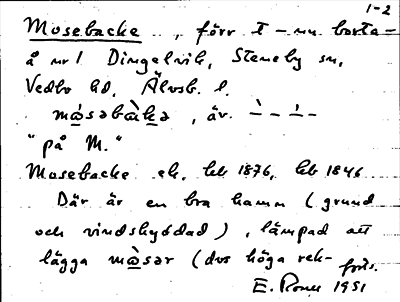 1-2
Mosebacke, förr t - nu borta -
å nr 1 Dingelvik, Steneby sn,
Vedbo hd, Älvsb. l.
mo̱səbàkə, äv.
"på M."
Mosebacke ek. kbl 1876, kbl 1846
Där är en bra hamn (grund
och vindskyddad), lämpad att
lägga mo̱sər (dvs höga rek-
forts.
E. 1951